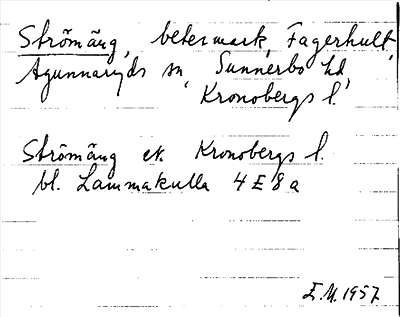 Strömäng, betesmark, Fagerhult,
Agunnaryds sn, Sunnerbo hd,
Kronobergs l.
Strömäng ek. Kronobergs l.
bl. Lammakulla 4E8a
E.M. 1957